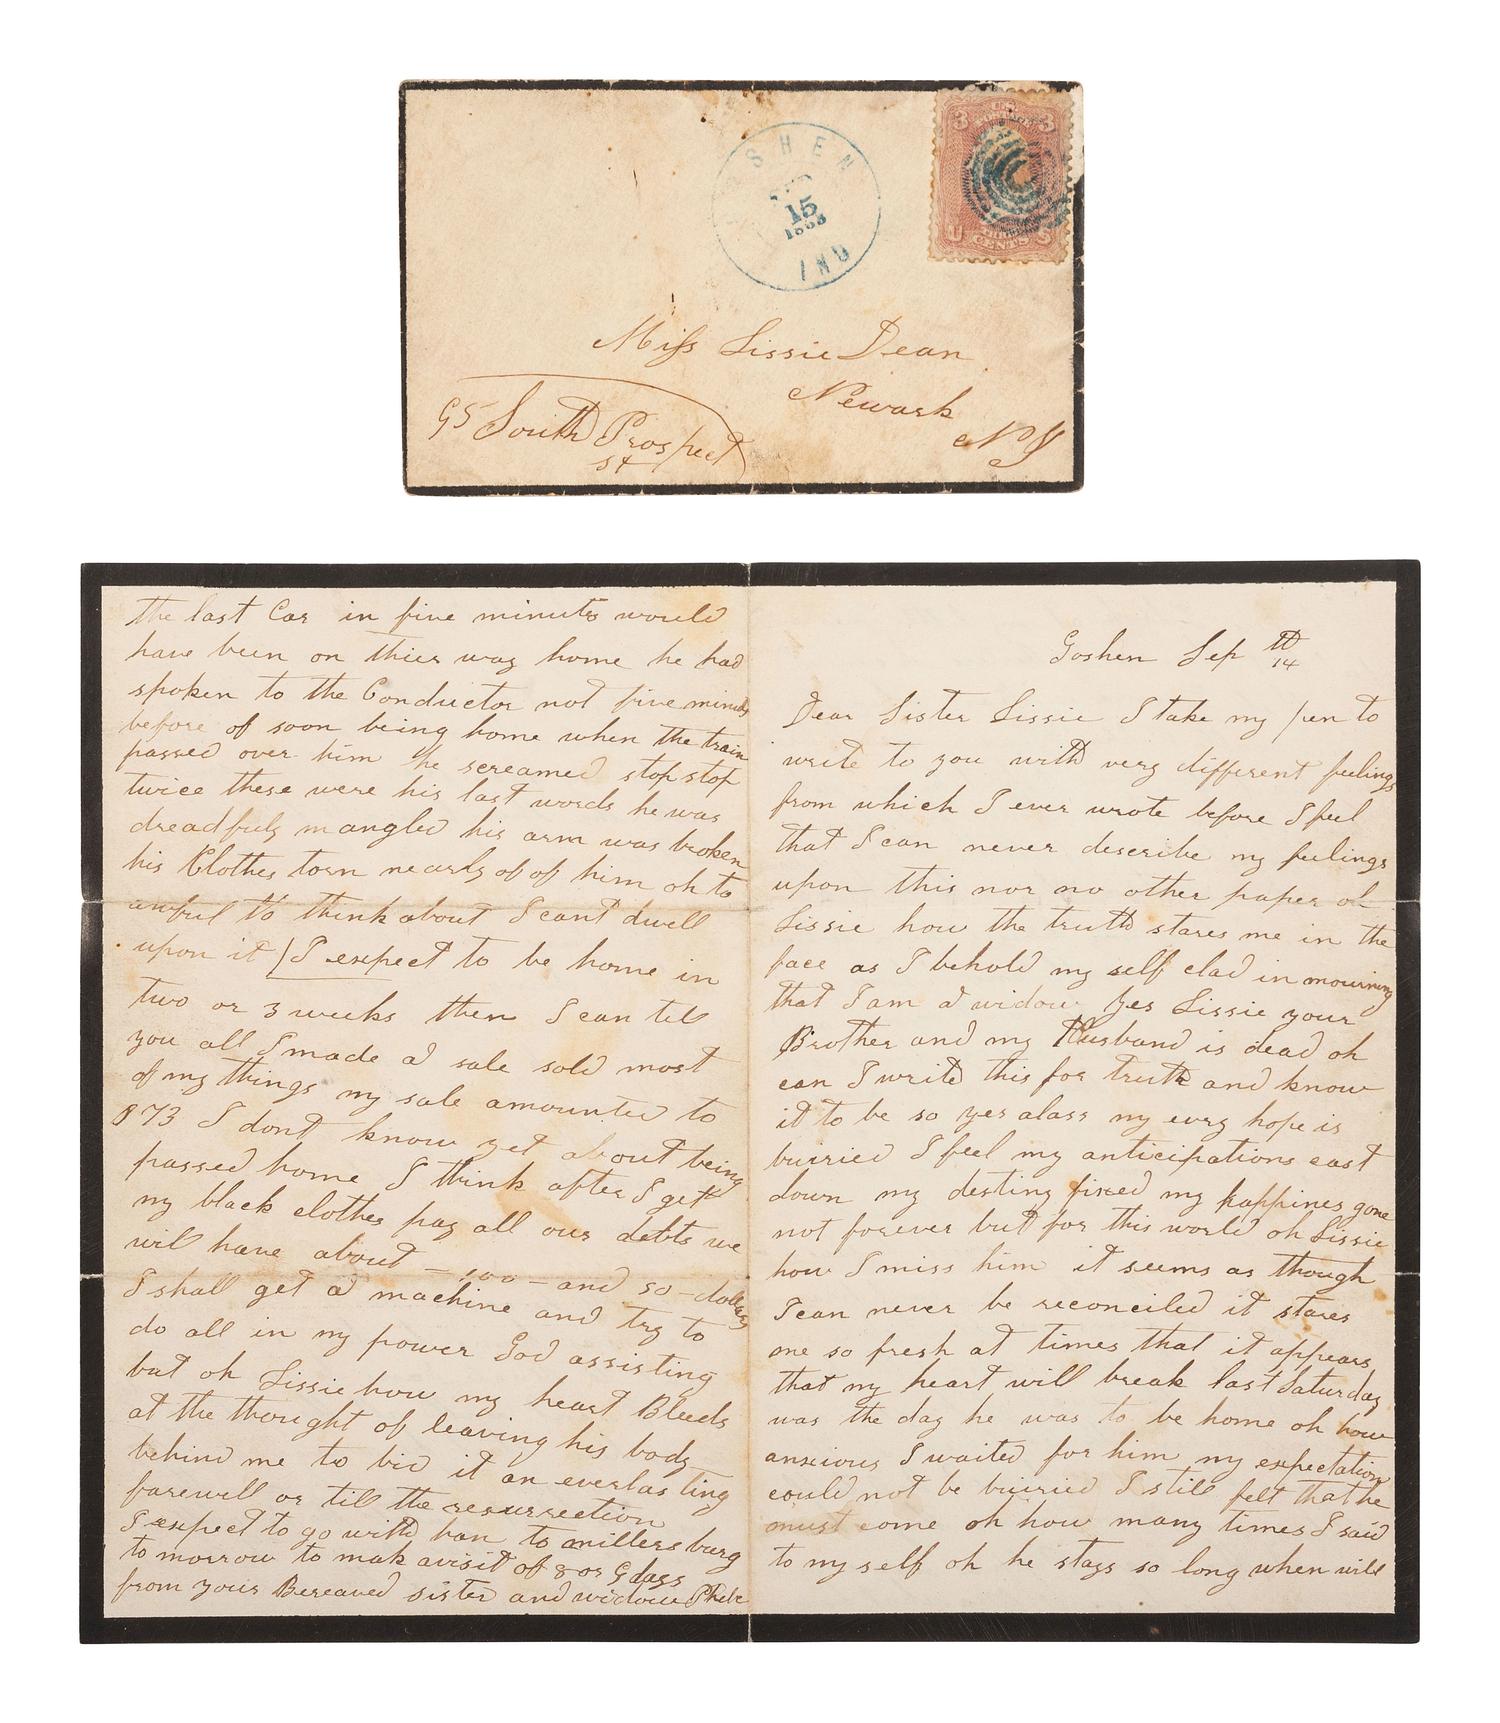 SHEN
15
IND
U.S.
3 3
U S
THREE
CENTS
Miss Lissie Dean
Newark
N J
95 South Prospect
st
Goshen Sep 14th
Dear Sister Lissie I take my pen to
write to you with very different feelings
from which I ever wrote before I feel
that I can never describe my feelings
upon this nor no other paper oh
Lissie how the truth stares me in the
face as I behold my self clad in mourning
that I am a widow Yes Lissie your
Brother and my Husband is dead oh
can I write this for truth and know
it to be so yes alass my evry hope is
burried I feel my anticipations cast
down my destiny fixed my happines gone
not forever but for this world oh Lissie
how I miss him it seems as though
I can never be reconciled it stares
me so fresh at times that it appears
that my heart will break last Saturday
was the day he was to be home oh how
anxious I waited for him my expectation
could not be buried I still felt that he
must come oh how many times I said
to my self oh he stays so long when will
the last Car in five minutes would
have been on thier way home he had
spoken to the Conductor not five minuts
before of soon being home when the train
passed over him he screamed stop stop
twice these were his last words he was
dreadfuly mangled his arm was broken
his Clothes torn nearly of of him oh to
awful to think about I cant dwell
upon it I expect to be home in
two or 3 weeks then I can tell
you all I made a sale sold most
of my things my sale amounted to
873 I dont know yet about being
passed home I think after I get
my black clothes pay all our debts we
wil have about - 100 - and 50 - dollars
I shall get a machine and try to
do all in my power God assisting
but oh Lissie how my heart Bleeds
at the thought of leaving his body
behind me to bid it an everlasting
farewell or till the resurrection
I expect to go with han to millersburg
to morrow to mak a visit of 8 or 9 days
from your Bereaved sister and widow Phebe